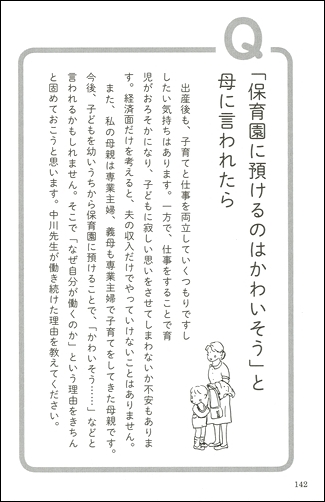 Q
「保育園に預けるのはかわいそう」と
母に言われたら
出産後も、子育てと仕事を両立していくつもりですし
したい気持ちはあります。一方で、仕事をすることで育
児がおろそかになり、子どもに寂しい思いをさせてしまわないか不安もありま
す。経済面だけを考えると、夫の収入だけでやっていけないことはありません。
また、私の母親は専業主婦、義母も専業主婦で子育てをしてきた母親です。
今後、子どもを幼いうちから保育園に預けることで、「かわいそう……」などと
言われるかもしれません。そこで「なぜ自分が働くのか」という理由をきちん
と固めておこうと思います。中川先生が働き続けた理由を教えてください。
142